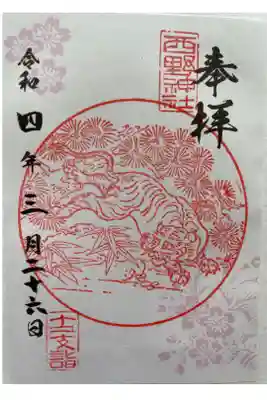 奉拝
西野神社
十二支詣
令和四年三月二十六日